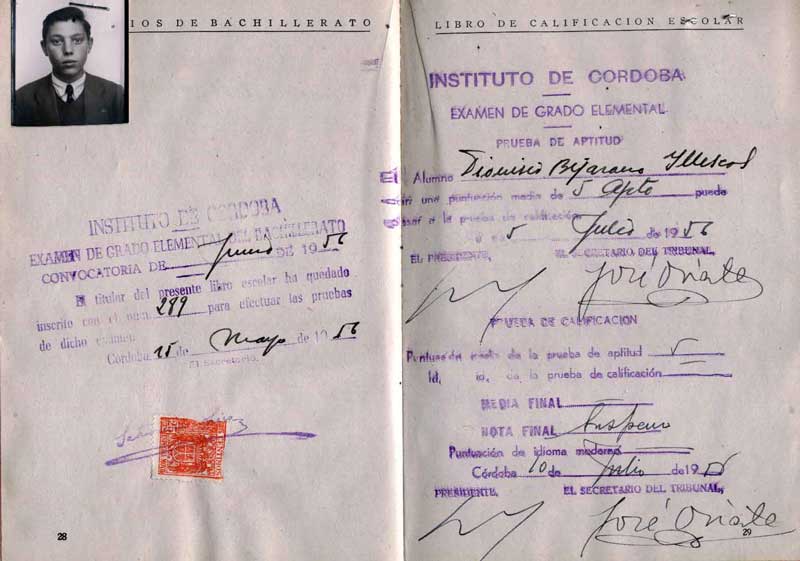 IOS DE BACHILLERATO
INSTITUTO DE CORDOBA
EXAMEN DE GRADO ELEMENTAL DEL BACHILLERATO
CONVOCATORIA DE Junio DE 1956
El titular del presente libro escolar ha quedado
inscrito con el núm. 289 para efectuar las pruebas
de dicho exámen.
Córdoba 15 de Mayo de 1956
El Secretario.
28
LIBRO DE CALIFICACION ESCOLAR
INSTITUTO DE CORDOBA
EXAMEN DE GRADO ELEMENTAL
PRUEBA DE APTITUD
El Alumno Dionisio Bejarano Illescas
una puntuación media de 5 Apto puede
pasar a la prueba de calificación
a 5 Julio de 1956
EL PRESIDENTE, EL SECRETARIO DEL TRIBUNAL,
José Oñate
PRUEBA DE CALIFICACION
Puntuación media de la prueba de aptitud 5
Id. id. de la prueba de calificación
MEDIA FINAL
NOTA FINAL Suspenso
Puntuación de idioma moderno
Córdoba 10 de Julio de 1956
PRESIDENTE, EL SECRETARIO DEL TRIBUNAL,
José Oñate
29